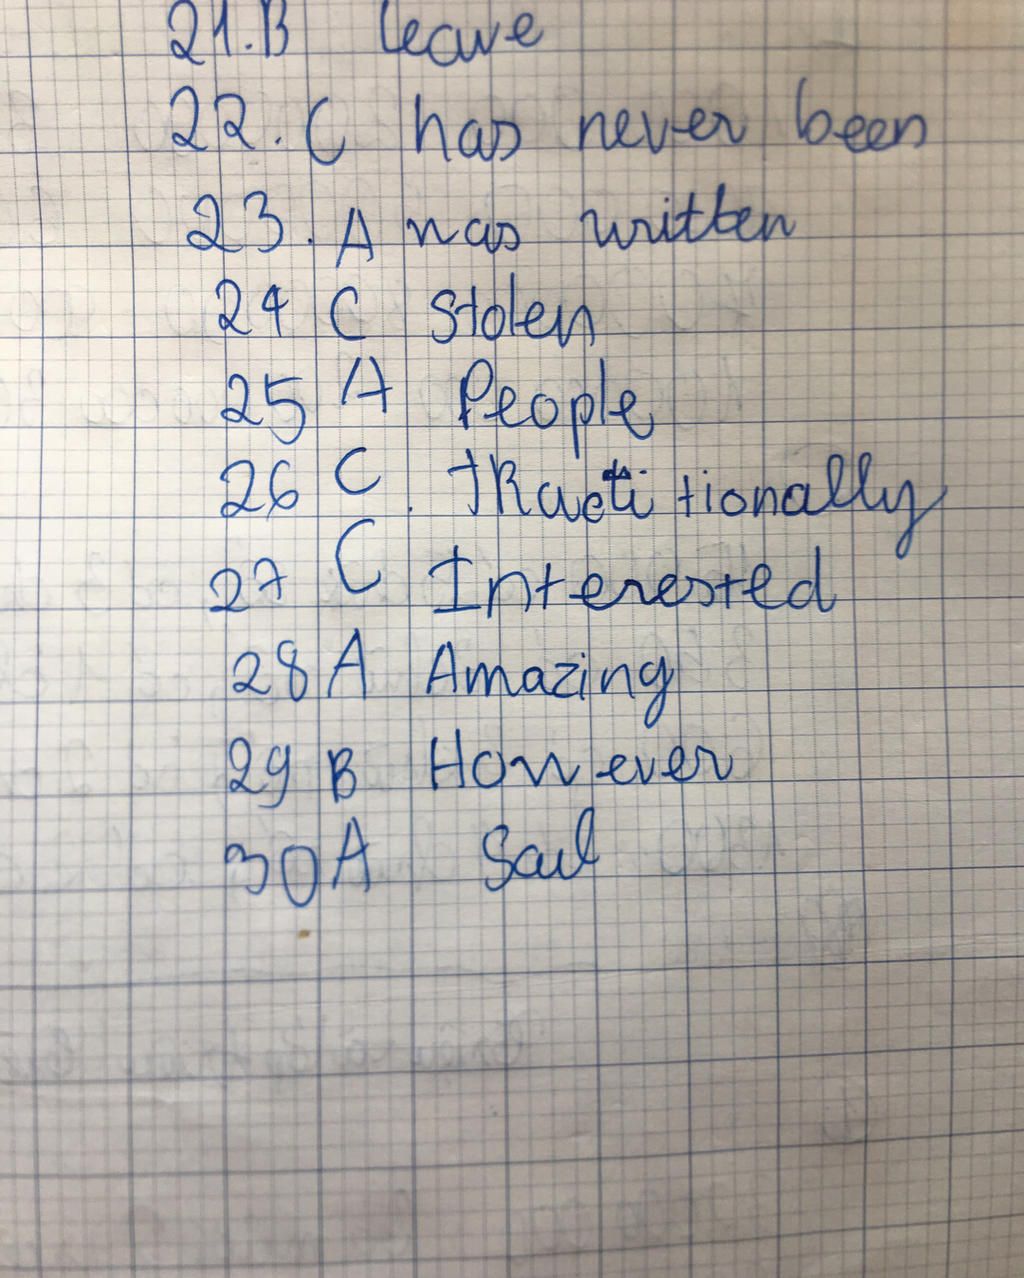 21.B leave
22. C has never been
23. A was written
24 C stolen
25 A People
26 C. tRaditionally
27 C Interested
28 A Amazing
29 B However
30 A Sail